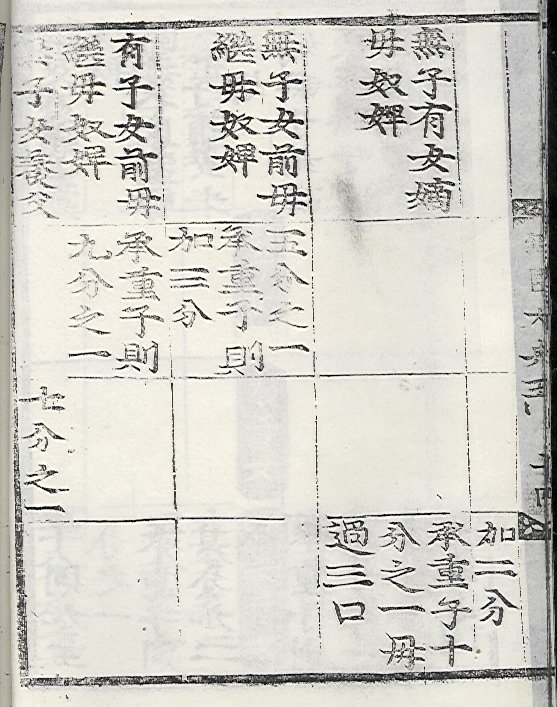 加二分
無子有女嫡
母奴婢
承重子十
分之一毋
過三口
無子女前母
繼母奴婢
五分之一
承重子則
加三分
有子女前母
繼母奴婢
承重子則
九分之一
子女養父
七分之一